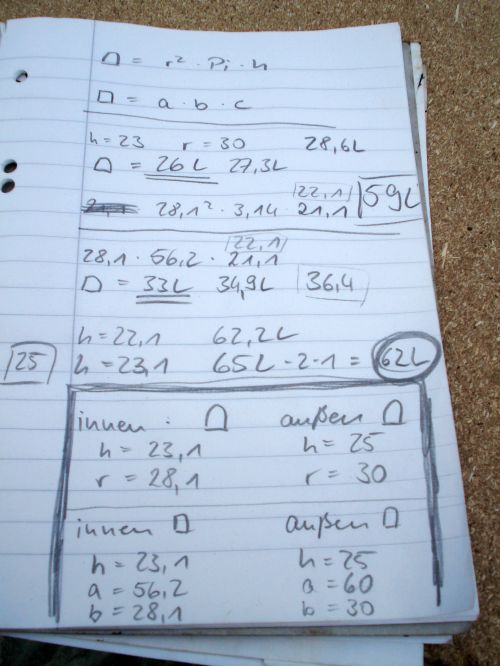 = r² · Pi · h
= a · b · c
h = 23 r = 30 28,6L
= 26L 27,3L
22,1
28,1² · 3,14 21,1 59L
22,1
28,1 · 56,2 · 21,1
= 33L 34,9L 36,4
h = 22,1 62,2L
25 h = 23,1 65L - 2 - 1 = 62L
innen : außen
h = 23,1 h = 25
r = 28,1 r = 30
innen außen
h = 23,1 h = 25
a = 56,2 a = 60
b = 28,1 b = 30